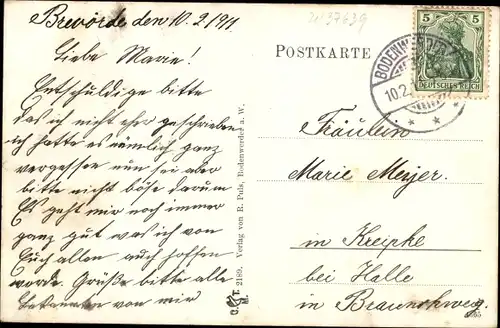 Brevörde den 10.2.1911.
Liebe Marie!
Entschuldige bitte
das ich nicht eher geschrieben
ich hatte es nämlich ganz
vergessen nun sei aber
bitte nicht böse darum
Es geht mir noch immer
ganz gut was ich von
Euch allen auch hoffen
werde. Grüße bitte alle
Bekannten von mir
Verlag von R. Puls, Bodenwerder a. W.
2189.
POSTKARTE
5 5
DEUTSCHES REICH
BODENWERDER
10.2.
Fräulein
Marie Meyer.
in Kreipke
bei Halle
in Braunschweig.